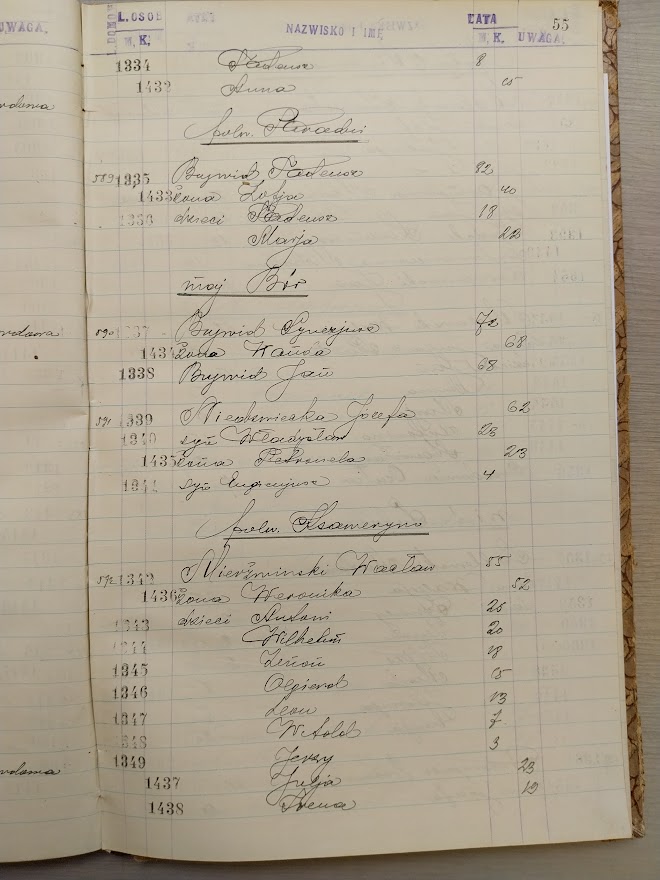 UWAGA.
L. DOMÓW L. OSÓB NAZWISKO I IMĘ LATA 55
M. K. M. K. UWAGA.
1334 Tadeusz 8
1432 Anna 15
589 1335 Bujwid Tadeusz 82
1433 żona Zofja 40
1336 dzieci Tadeusz 18
Marja 23
maj Bór
590 1337 Bujwid Synezjusz 72
1434 żona Wanda 68
1338 Bujwid Jan 68
591 1339 Józefa 62
1340 syn Władysław 28
1435 żona Petronela 23
1341 syn Eugenjusz 4
592 1342 Mierzwinski Wacław 55
1436 żona Weronika 52
1343 dzieci Antoni 25
1344 Wilhelm 20
1345 Zenon 18
1346 Olgierd 15
1347 Leon 13
1348 Witold 7
1349 Jerzy 3
1437 Julja 23
1438 Irena 19